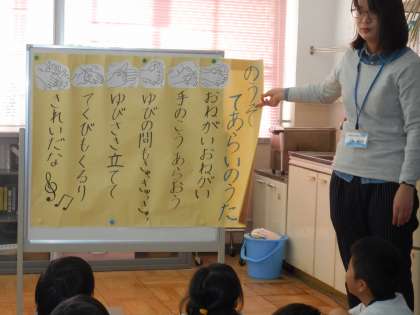 のうぞ
てあらいのうた
おねがいおねがい
手のこうあらおう
ゆびの間も
ゆびさき立てて
てくびもくるり
きれいだな